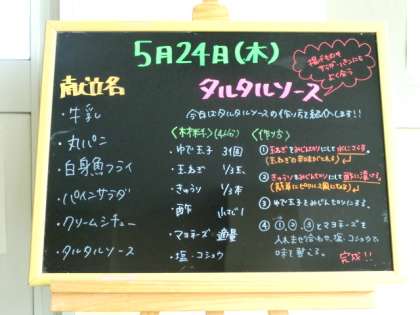 5月24日(木)
献立名
・牛乳
・丸パン
・白身魚フライ
・パインサラダ
・クリームシチュー
・タルタルソース
タルタルソース
揚げものや
サラダ、パンにも
よく合う
今日はタルタルソースの作り方を紹介します!!
<材料>(4人分)
・ゆで玉子 3個
・玉ねぎ
・きゅうり
・酢
・マヨネーズ 適量
・塩・コショウ
<作り方>
①玉ねぎをみじん切りにして水にさらす。
②きゅうりをみじん切りにして酢に漬ける。
③ゆで玉子をみじん切りにする。
④①、②、③とマヨネーズを
入れませ合わせ、塩・コショウで
味を整える。
完成!!